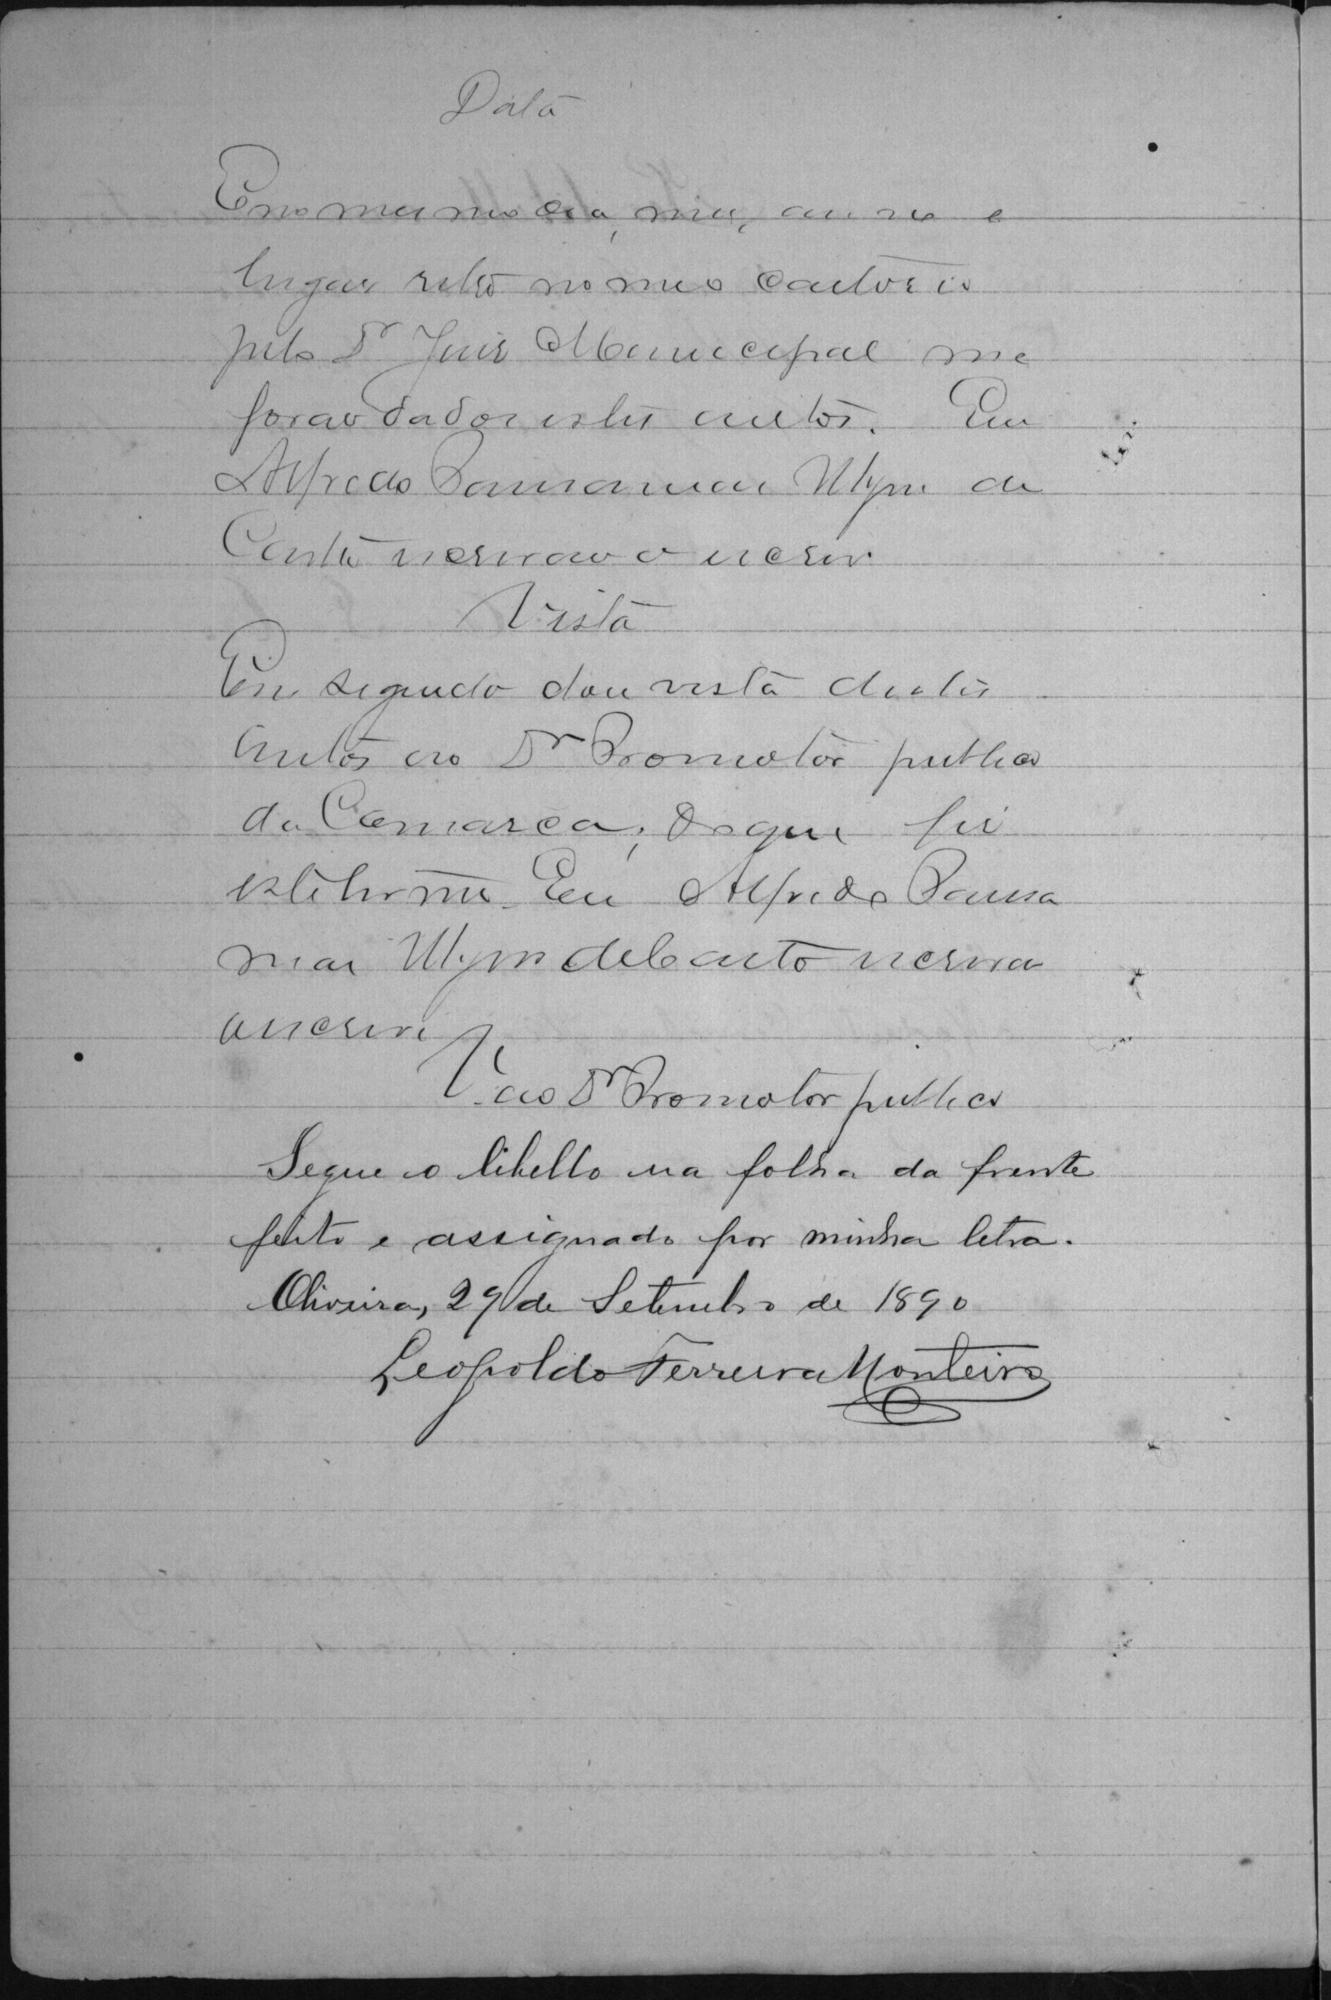 Data
E no mesmo dia, mez, anno e
lugar retro no meo cartorio
pelo Dr Juiz Municipal me
forão dados estes autos. Eu
Alfredo
Castro escrivão o escrevi
Vista
Em seguida dou vista destes
autos ao Dr Promotor publico
da Comarca; do que fiz
este termo. Eu Alfredo
de Castro escrivão
o escrevi
V. ao Dr Promotor publico
Segue o libello na folha da frente
feito e assignado por minha letra.
Oliveira, 29 de Setembro de 1890
Leopoldo Ferreira Monteiro